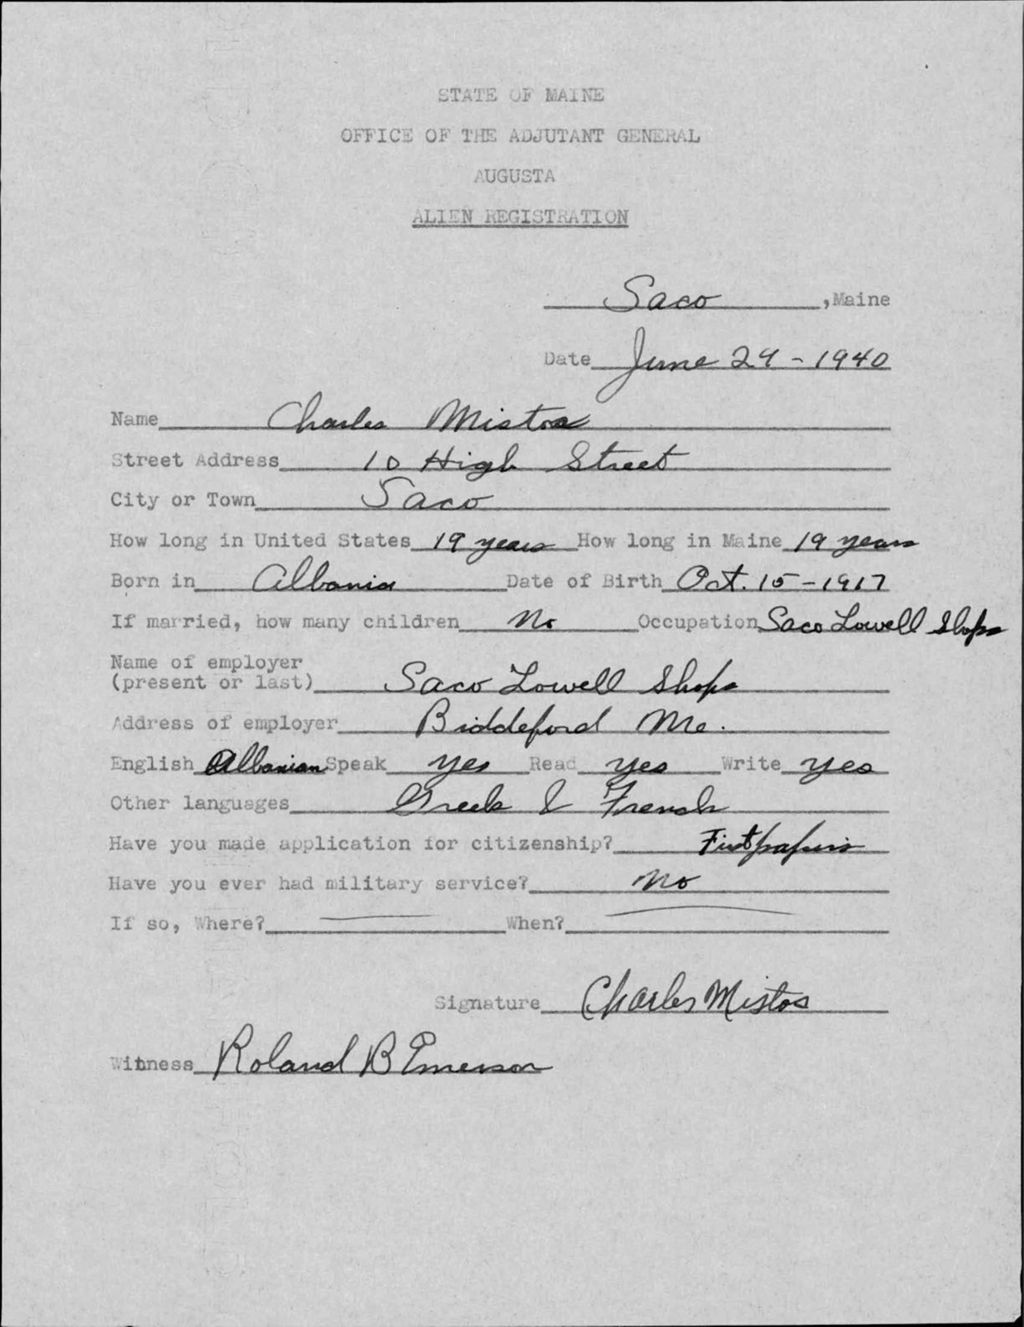 STATE OF MAINE
OFFICE OF THE ADJUTANT GENERAL
AUGUSTA
ALIEN REGISTRATION
Saco, Maine
Date June 29-1940
Name Charles Mistos
Street Address 10 High Street
City or Town Saco
How long in United States 19 years How long in Maine 19 years
Born in Albania Date of Birth Oct. 15-1917
If married, how many children No Occupation Saco Lowell Shops
Name of employer
(present or last) Saco Lowell Shops
Address of employer Biddeford Me.
English Albanian Speak yes Read yes Write yes
Other languages Greek & French
Have you made application for citizenship? First papers
Have you ever had military service? No
If so, Where? When?
Signature Charles Mistos
Witness Roland B Emerson